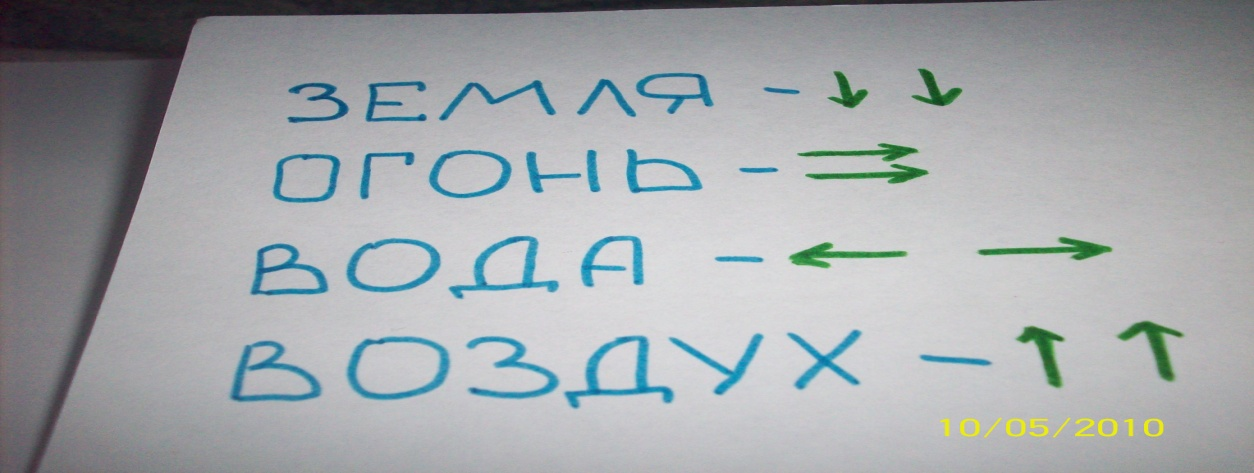 ЗЕМЛЯ - ↓ ↓
ОГОНЬ - ⇉
ВОДА - ← →
ВОЗДУХ - ↑ ↑
10/05/2010